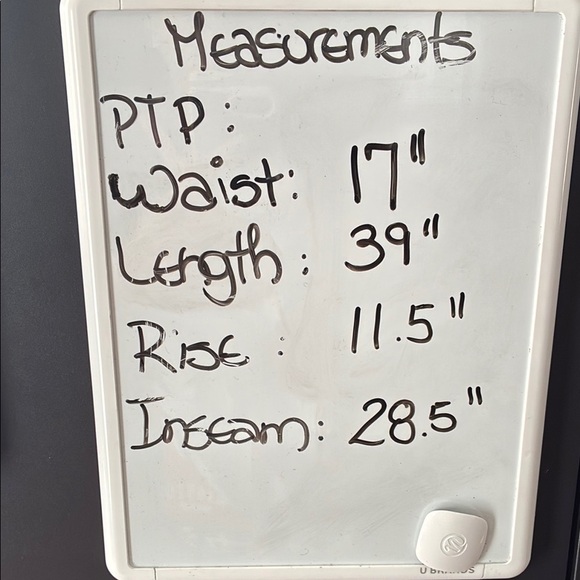 Measurements
PTP:
Waist: 17"
Length: 39"
Rise: 11.5"
Inseam: 28.5"
U BRANDS